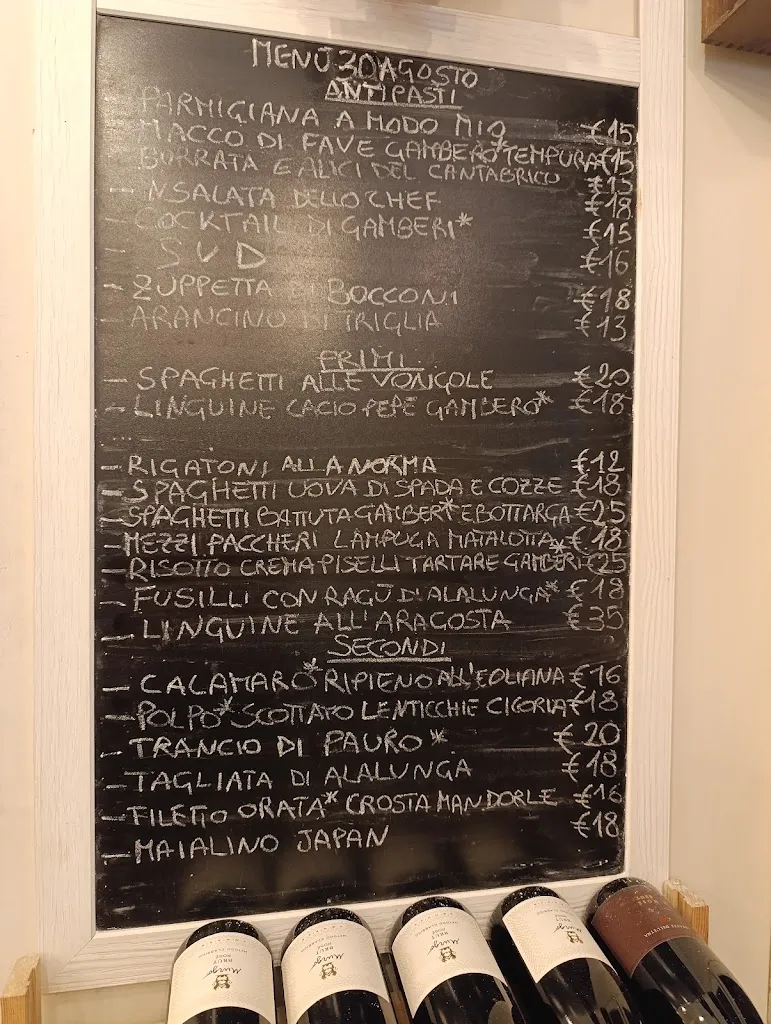 MENÙ 30 AGOSTO
ANTIPASTI
PARMIGIANA A MODO MIO €15
MACCO DI FAVE GAMBERO* TEMPURA €15
BURRATA E ALICI DEL CANTABRICO €15
- INSALATA DELLO CHEF €18
- COCKTAIL DI GAMBERI* €15
- SUD €16
- ZUPPETTA DI BOCCONI €18
- ARANCINO DI TRIGLIA €13
PRIMI
- SPAGHETTI ALLE VONGOLE €20
- LINGUINE CACIO PEPE GAMBERO* €18
- RIGATONI ALLA NORMA €12
- SPAGHETTI UOVA DI SPADA E COZZE €18
- SPAGHETTI BATTUTA GAMBERI* E BOTTARGA €25
- MEZZI PACCHERI LAMPUGA MATALOTTA €18
- RISOTTO CREMA PISELLI TARTARE GAMBERI* €25
- FUSILLI CON RAGÙ DI ALALUNGA* €18
- LINGUINE ALL'ARAGOSTA €35
SECONDI
- CALAMARO* RIPIENO ALL'EOLIANA €16
- POLPO* SCOTTATO LENTICCHIE CICORIA €18
- TRANCIO DI PAURO* €20
- TAGLIATA DI ALALUNGA €18
- FILETTO ORATA* CROSTA MANDORLE €16
- MAIALINO JAPAN €18
Murgo
BRUT
Murgo
BRUT
Murgo
BRUT
Murgo
BRUT